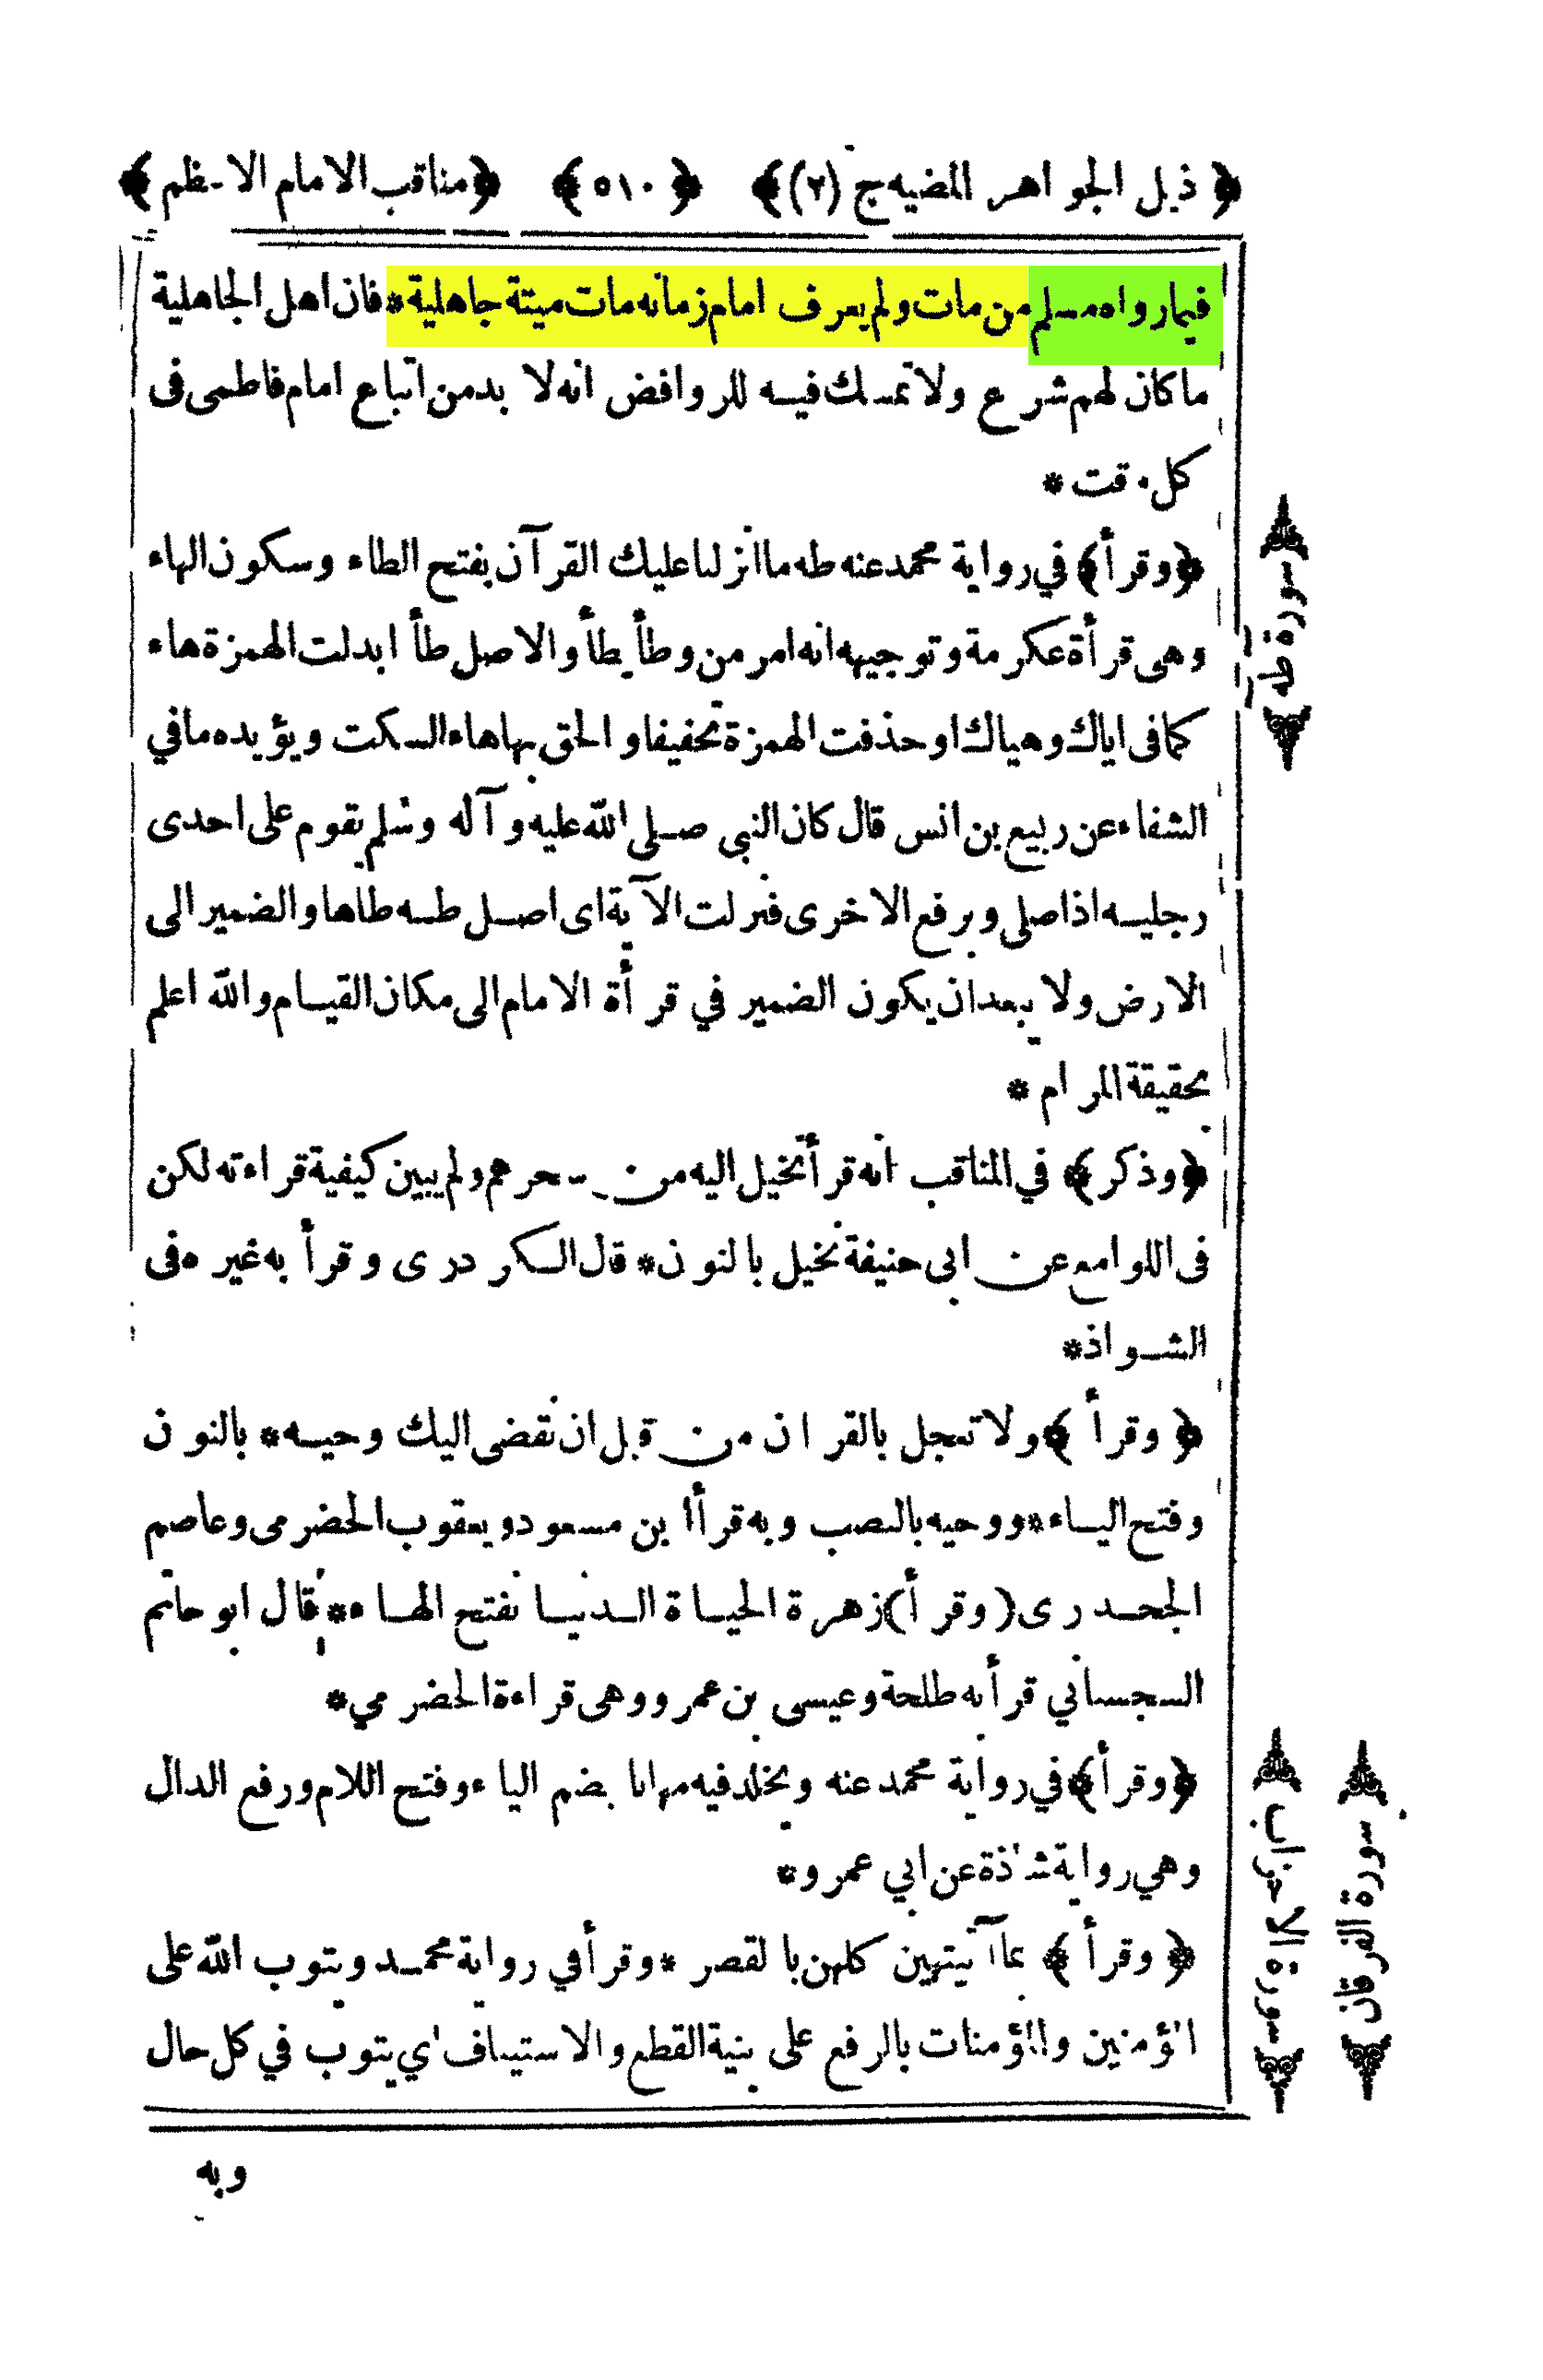 ﴿ ذيل الجواهر المضيه ج (٢) ﴾ ﴿ ٥١٠ ﴾ ﴿ مناقب الامام الاعظم ﴾
فيما رواه مسلم من مات ولم يعرف امام زمانه مات ميتة جاهلية * فان اهل الجاهلية
ما كان لهم شرع ولا تمسك فيه للروافض انه لا بد من اتباع امام فاطمى فى
كل وقت *
﴿ وقرأ ﴾ في رواية محمد عنه طه ما انزلنا عليك القرآن بفتح الطاء وسكون الهاء
وهى قرأة عكرمة وتوجيهه انه امر من وطأ يطأ والاصل طأ ابدلت الهمزة هاء
كما فى اياك وهياك او حذفت الهمزة تخفيفا و الحق بها هاء السكت ويؤيده ما في
الشفاء عن ربيع بن انس قال كان النبي صلى الله عليه و آله وسلم يقوم على احدى
رجليه اذا صلى ويرفع الاخرى فنزلت الآية اى اصل طه طاها والضمير الى
الارض ولا يبعد ان يكون الضمير في قرأة الامام الى مكان القيام والله اعلم
بحقيقة المرام *
﴿ وذكر ﴾ في المناقب انه قرأ تخيل اليه من سحرهم ولم يبين كيفية قراءته لكن
فى اللوامع عن ابى حنيفة نخيل بالنون * قال الكردرى وقرأ به غيره فى
الشواذ *
﴿ وقرأ ﴾ ولا تعجل بالقران من قبل ان نقضى اليك وحيه * بالنون
وفتح الياء * ووحيه بالنصب وبه قرأ ابن مسعود و يعقوب الحضرمى وعاصم
الجحدرى ( وقرأ ) زهرة الحياة الدنيا بفتح الهاء * قال ابو حاتم
السجستاني قرأ به طلحة وعيسى بن عمرو وهى قراءة الحضرمي *
﴿ وقرأ ﴾ في رواية محمد عنه ويخلد فيه مهانا بضم الياء وفتح اللام ورفع الدال
وهي رواية شاذة عن ابي عمرو *
﴿ وقرأ ﴾ بما آتيتهن كلهن بالقصر * وقرأ في رواية محمد ويتوب الله على
المؤمنين والمؤمنات بالرفع على نية القطع والاستيناف اي يتوب في كل حال
وبه
سورة طه
سورة الفرقان
سورة الاحزاب